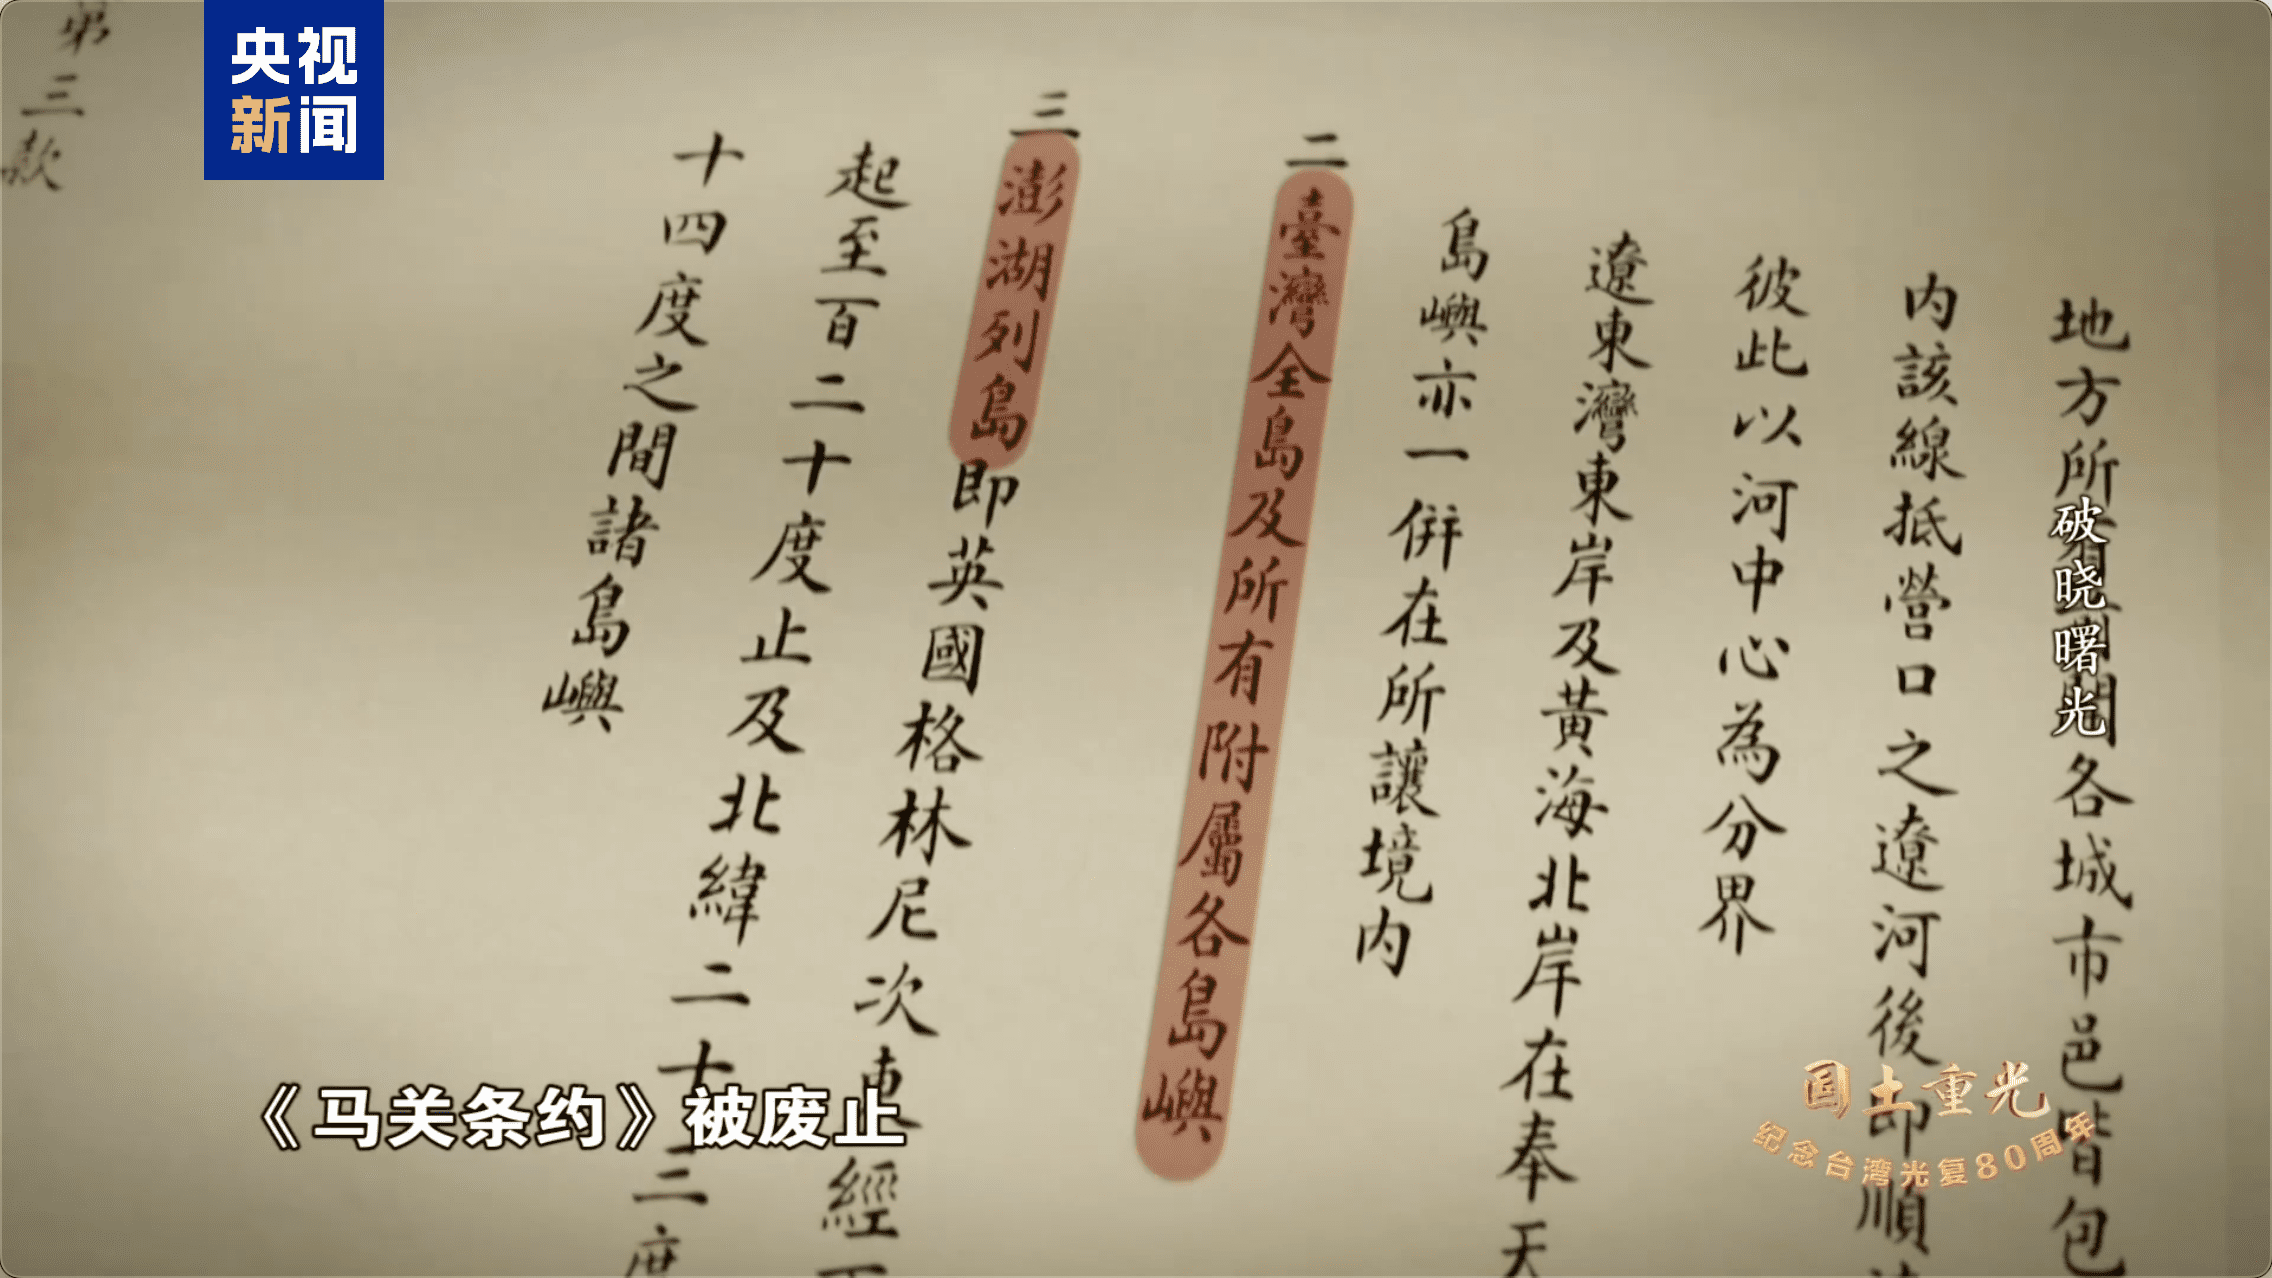 央视
新闻
地方所有各城市邑皆包
内該線抵營口之遼河後即順流
彼此以河中心為分界
遼東灣東岸及黃海北岸在奉天
島嶼亦一併在所讓境内
二
臺灣全島及所有附屬各島嶼
三
澎湖列島即英國格林尼次東經百
起至百二十度止及北緯二十三度
十四度之間諸島嶼
第三款
破晓曙光
《马关条约》被废止
国土重光
纪念台湾光复80周年